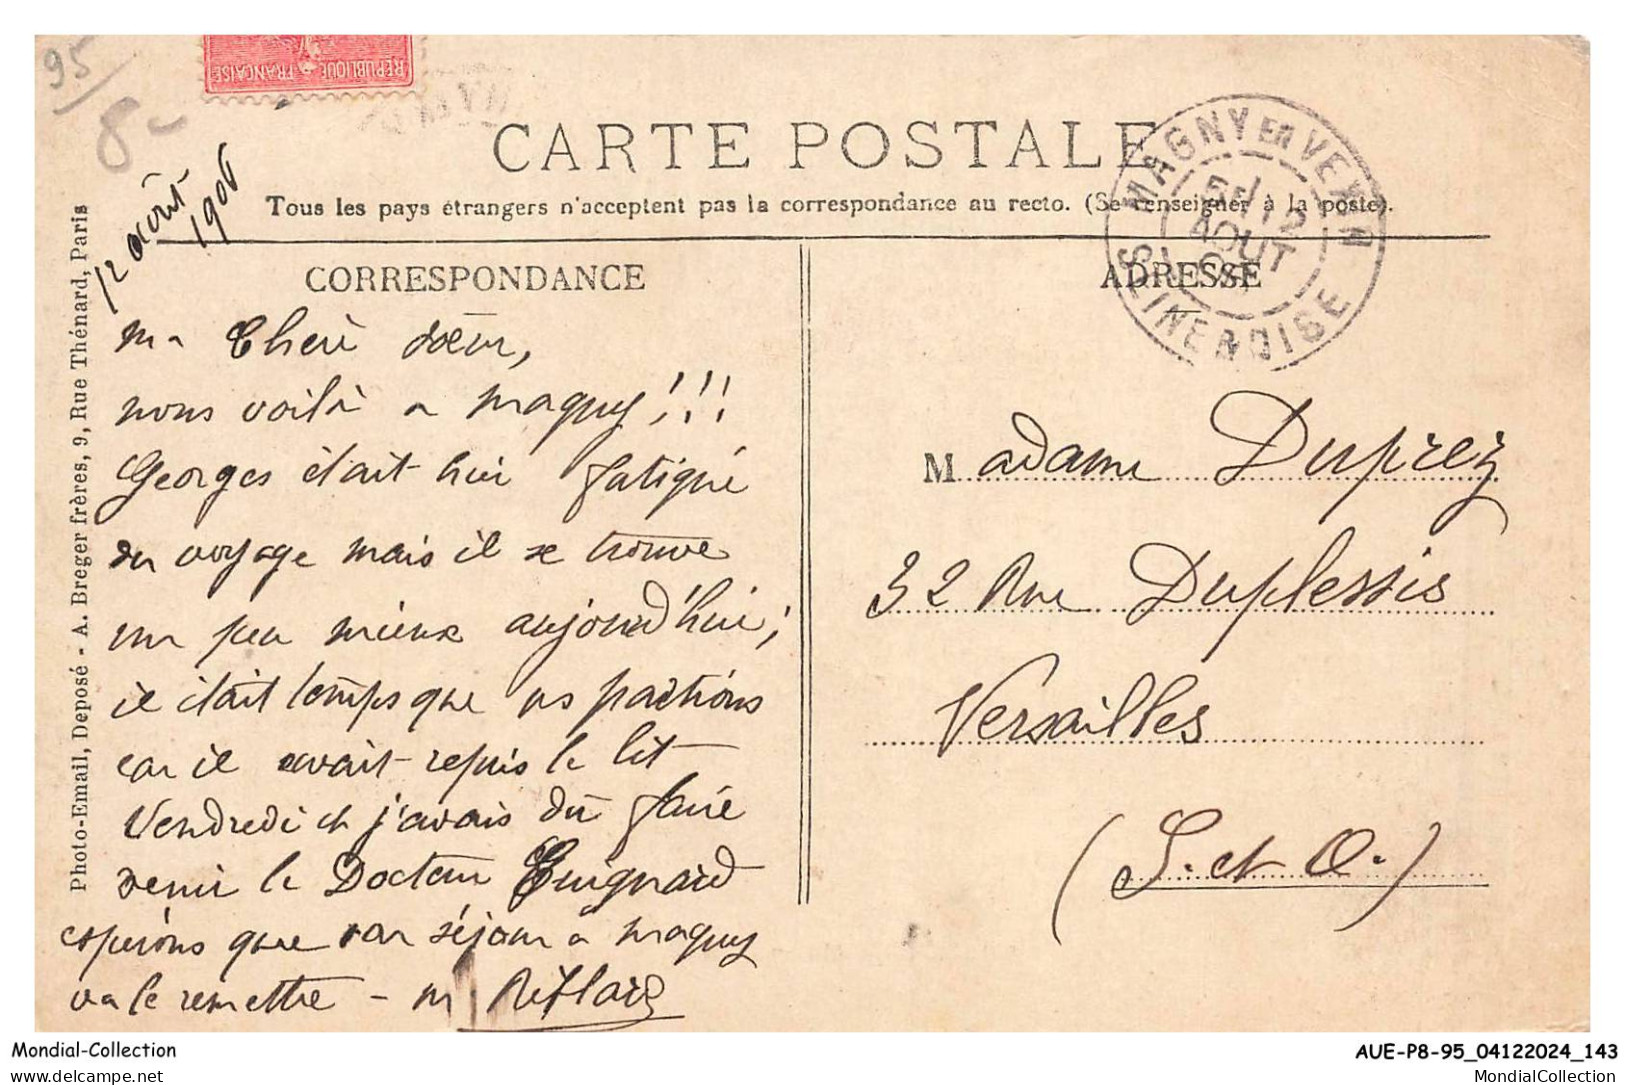 95/
8
RÉPUBLIQUE FRANÇAISE
CARTE POSTALE
Tous les pays étrangers n'acceptent pas la correspondance au recto. (Se renseigner à la poste).
MAGNY EN VEXIN
12
AOUT
SEINE & OISE
12 août
1906
CORRESPONDANCE
ma Chère sœur,
nous voilà a magny!!!
Georges était hier fatigué
du voyage mais il se trouve
un peu mieux aujourd'hui;
il était temps que ns partions
car il avait repris le lit
Vendredi et j'avais dû faire
venir le Docteur Guignard
espérons que son séjour a magny
va le remettre - M
Photo-Email, Deposé - A. Breger frères, 9, Rue Thénard, Paris
ADRESSE
Madame Duprez
32 Rue Duplessis
Versailles
(S. et O.)
Mondial-Collection
delcampe.net
AUE-P8-95_04122024_143
MondialCollection